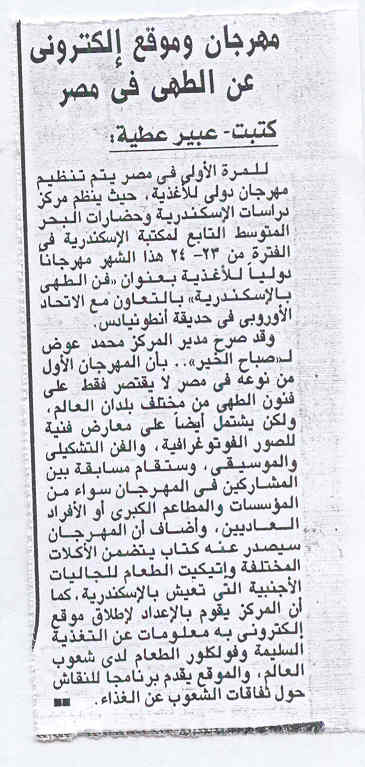 مهرجان وموقع إلكترونى
عن الطهى فى مصر
كتبت- عبير عطية:
للمرة الأولى فى مصر يتم تنظيم
مهرجان دولى للأغذية، حيث ينظم مركز
دراسات الإسكندرية وحضارات البحر
المتوسط التابع لمكتبة الإسكندرية فى
الفترة من ٢٣- ٢٤ هذا الشهر مهرجانا
دولياً للأغذية بعنوان «فن الطهى
بالإسكندرية» بالتعاون مع الاتحاد
الأوروبى فى حديقة أنطونيادس.
وقد صرح مدير المركز محمد عوض
لـ«صباح الخير».. بأن المهرجان الأول
من نوعه فى مصر لا يقتصر فقط على
فنون الطهى من مختلف بلدان العالم،
ولكن يشتمل أيضاً على معارض فنية
للصور الفوتوغرافية، والفن التشكيلى
والموسيقى، وستقام مسابقة بين
المشاركين فى المهرجان سواء من
المؤسسات والمطاعم الكبرى أو الأفراد
العاديين، وأضاف أن المهرجان
سيصدر عنه كتاب يتضمن الأكلات
المختلفة وإتيكيت الطعام للجاليات
الأجنبية التى تعيش بالإسكندرية، كما
أن المركز يقوم بالإعداد لإطلاق موقع
إلكترونى به معلومات عن التغذية
السليمة وفولكلور الطعام لدى شعوب
العالم، والموقع يقدم برنامجا للنقاش
حول ثقافات الشعوب عن الغذاء.